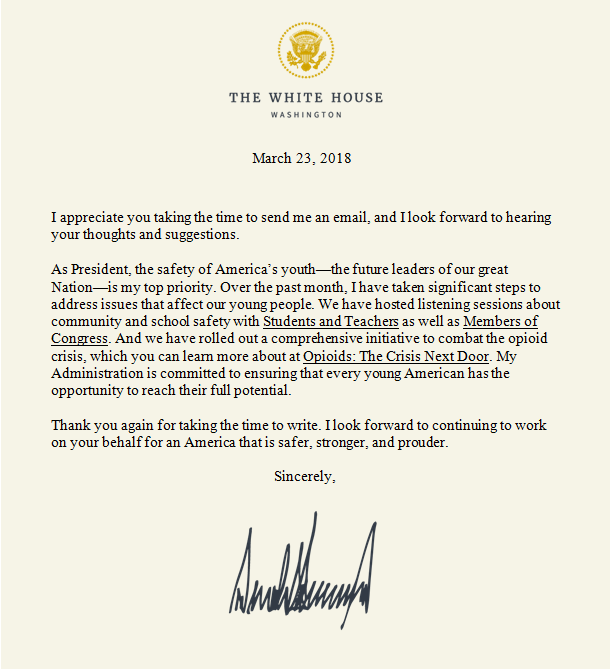 THE WHITE HOUSE
WASHINGTON
March 23, 2018
I appreciate you taking the time to send me an email, and I look forward to hearing
your thoughts and suggestions.
As President, the safety of America’s youth—the future leaders of our great
Nation—is my top priority. Over the past month, I have taken significant steps to
address issues that affect our young people. We have hosted listening sessions about
community and school safety with Students and Teachers as well as Members of
Congress. And we have rolled out a comprehensive initiative to combat the opioid
crisis, which you can learn more about at Opioids: The Crisis Next Door. My
Administration is committed to ensuring that every young American has the
opportunity to reach their full potential.
Thank you again for taking the time to write. I look forward to continuing to work
on your behalf for an America that is safer, stronger, and prouder.
Sincerely,